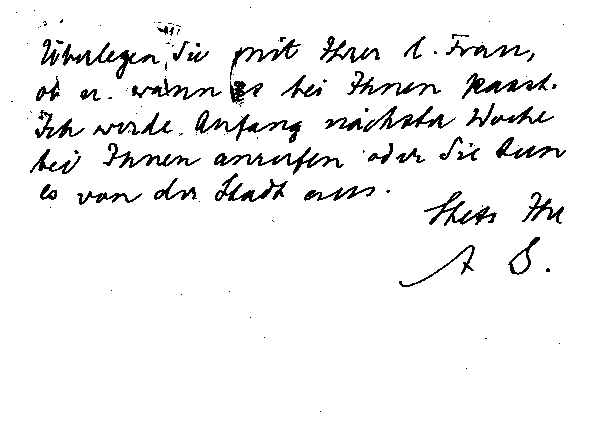 Überlegen Sie mit Ihrer l. Frau,
ob u. wann es bei Ihnen passt.
Ich werde Anfang nächster Woche
bei Ihnen anrufen oder Sie tun
es von der Stadt aus.
Stets Ihr
A S.